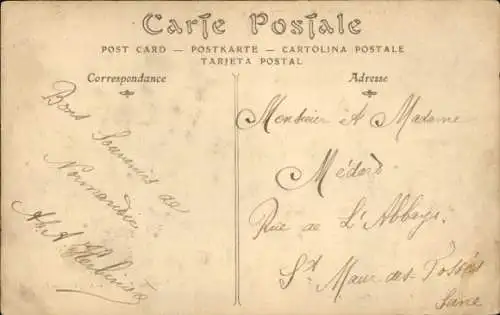 Carte Postale
POST CARD — POSTKARTE — CARTOLINA POSTALE
TARJETA POSTAL
Correspondance
Bons Souvenirs de
Normandie
Adresse
Monsieur et Madame
Médard
Rue de L'Abbaye
St Maur-des-Fossés
Seine